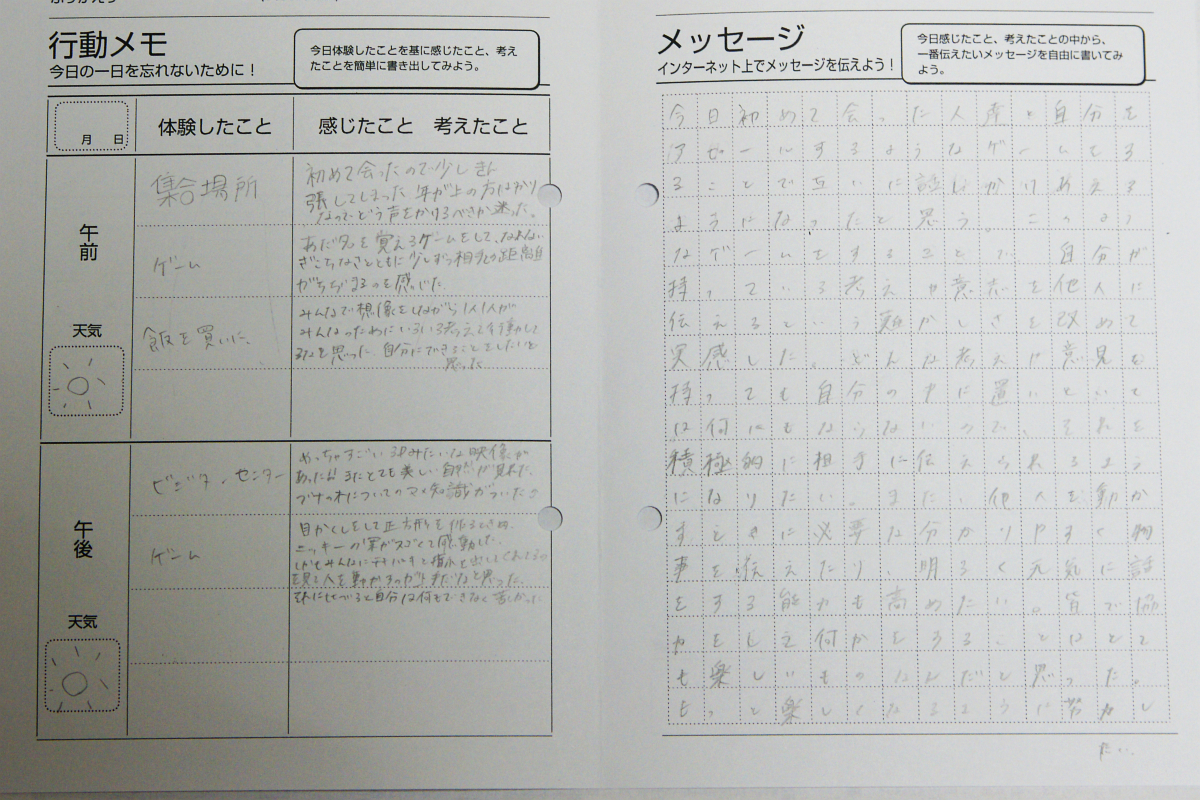 行動メモ
今日の一日を忘れないために！
今日体験したことを基に感じたこと、考え
たことを簡単に書き出してみよう。
月 日
体験したこと
感じたこと 考えたこと
午前
天気
集合場所
初めて会ったので少しきん
張してしまった 年が上の方ばかり
なのでどう声をかけるべきか迷った。
ゲーム
あだ名を覚えるゲームをして、
ぎこちなさとともに少しずつ相手との距離
がちぢまるのを感じた。
飯を買いに、
みんなで想像をしながら1人1人が
みんなのためにいろいろ考えて行動して
ると思った 自分にできることをしたいと
思った
午後
天気
ビジター・センター
めっちゃすごい3Dみたいな映像が
あった またとても美しい自然が見れた。
ブナの木についてのマメ知識がついた
ゲーム
目かくしをして正方形を作るとき
ニッキーの
しかもみんなに 指示を出してくれて
人を動かすのが だなと思った。
自分は何もできなく
メッセージ
インターネット上でメッセージを伝えよう！
今日感じたこと、考えたことの中から、
一番伝えたいメッセージを自由に書いてみ
よう。
今日初めて会った人達と自分を
アピールするようなゲームをす
ることで互いに話しかけあえる
ようになったと思う。このよう
なゲームをすることで、自分が
持っている考えや意志を他人に
伝えるという難かしさを改めて
実感した。どんな考えや意見を
持っても自分の中に置いといて
は何にもならないので、それを
積極的に相手に伝えられるよう
になりたい。また、他人を動か
すときに必要な分かりやすく物
事を伝えたり、明るく元気に話
をする能力も高めたい。皆で協
力をして何かをすることはとて
も楽しいものなんだと思った。
もっと楽しくなるように努力し
たい。